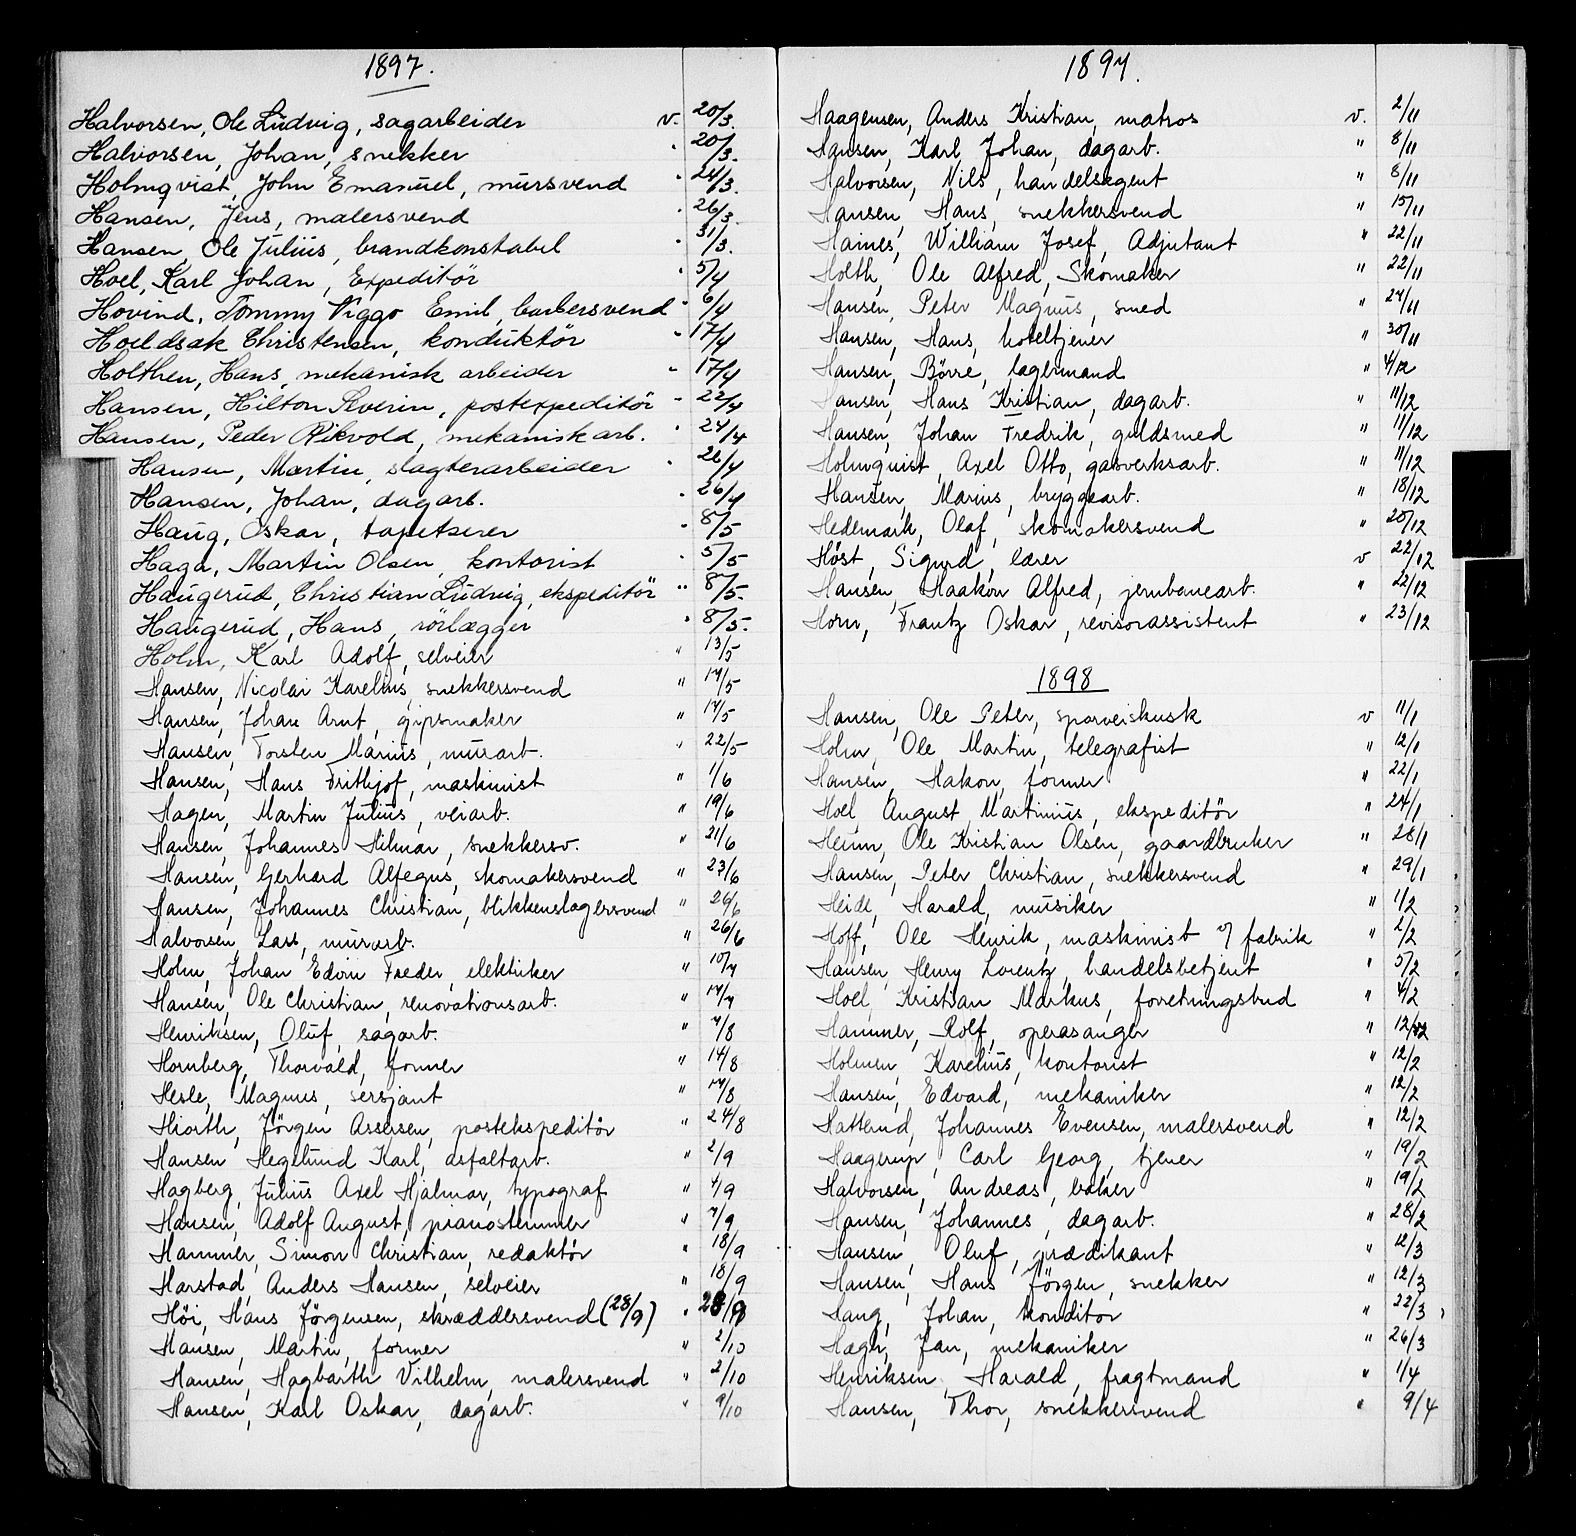 1897.
Halvorsen, Ole Ludvig, sagarbeider v. 20/3.
Halvorsen, Johan, snekker " 20/3.
Holmqvist, John Emanuel, mursvend " 24/3.
Hansen, Jens, malersvend " 26/3.
Hansen, Ole Julius, brandkonstabel " 31/3.
Hoel, Karl Johan, Expeditör " 5/4
Hovind, Tommy Viggo Emil, barbersvend " 6/4
Hoeldsak Christensen, konduktör " 17/4
Holthen, Hans, mekanisk arbeider " 17/4
Hansen, Hilton Severin, postexpeditör " 22/4
Hansen, Peder Rikvold, mekanisk arb. " 24/4
Hansen, Martin, slagterarbeider " 26/4
Hansen, Johan, dagarb. " 26/4
Haug, Oskar, tapetserer " 8/5
Haga, Martin Olsen, kontorist " 5/5
Haugerud, Christian Ludvig, ekspeditör " 8/5.
Haugerud, Hans, rörlægger " 8/5.
Holm, Karl Adolf, selveier " 13/5
Hansen, Nicolai Karelius, snekkersvend " 14/5
Hansen, Johan Arnt, gipsmaker " 14/5
Hansen, Torsten Marius, murarb. " 22/5
Hansen, Hans Frithjof, maskinist " 1/6
Hagen, Martin Julius, veiarb. " 19/6
Hansen, Johannes Hilmar, snekkersv. " 21/6
Hansen, Gerhard Alfegus, skomakersvend " 23/6
Hansen, Johannes Christian, blikkenslagersvend " 26/6
Halvorsen, Lars, murarb. " 26/6
Holm, Johan Edvin Freder, elektriker " 10/7
Hansen, Ole Christian, renovationsarb. " 17/7
Henriksen, Oluf, sagarb. " 7/8
Hornberg, Thorvald, former " 14/8
Hesle, Magnus, sersjant " 14/8
Hiorth, Jörgen Assersen, postekspeditör " 24/8
Hansen Hegelund Karl, asfaltarb. " 2/9
Hagberg, Julius Axel Hjalmar, typograf " 4/9
Hansen, Adolf August, pianostemmer " 7/9
Hammer, Simon Christian, redaktör " 18/9
Harstad, Anders Hansen, selveier " 18/9
Höi, Hans Jörgensen, skræddersvend (28/9) " 28/9
Hansen, Martin, former " 2/10
Hansen, Hagbarth Vilhelm, malersvend " 2/10
Hansen, Karl Oskar, dagarb. " 9/10
1897.
Haagensen, Anders Kristian, matros v. 2/11
Hansen, Karl Johan, dagarb. " 8/11
Halvorsen, Nils, handelsagent " 8/11
Hansen, Hans, snekkersvend " 15/11
Haines, William Josef, Adjutant " 22/11
Holth, Ole Alfred, Skomaker " 22/11
Hansen, Peter Magnus, smed " 24/11
Hansen, Hans, hoteltjener " 30/11
Hansen, Börre, lagermand " 4/12
Hansen, Hans Kristian, dagarb. " 11/12
Hansen, Johan Fredrik, guldsmed " 11/12
Holmquist, Axel Otto, gasverksarb. " 11/12
Hansen, Marius, bryggearb. " 18/12
Hedemark, Olaf, skomakersvend " 20/12
Höst, Sigurd, lærer v 22/12
Hansen, Haakon Alfred, jernbanearb. " 22/12
Horn, Frantz Oskar, revisorassistent " 23/12
1898
Hansen, Ole Peter, sporveiskusk v 11/1
Holm, Ole Martin, telegrafist " 12/1
Hansen, Hakon, former " 22/1
Hoel, August Martinius, ekspeditör " 24/1
Heum, Ole Kristian Olsen, gaardbruker " 28/1
Hansen, Peter Christian, snekkersvend " 29/1
Heide, Harald, musiker " 1/2
Hoff, Ole Henrik, maskinist v/ fabrik " 2/2
Hansen, Henry Lorentz, handelsbetjent " 5/2
Hoel, Kristian Markus, foretningsbud " 4/2
Hammer, Rolf, operasanger " 12/2
Holmen, Karelius, kontorist " 12/2
Hansen, Edvard, mekaniker " 12/2
Hatterud, Johannes Evensen, malersvend " 12/2
Haagerup, Carl Georg, tjener " 19/2
Halvorsen, Andreas, baker " 19/2
Hansen, Johannes, dagarb. " 28/2
Hansen, Oluf, prædikant " 12/3
Hansen, Hans Jörgen, snekker " 12/3
Haug, Johan, konditor " 22/3
Hæger, Jan, mekaniker " 26/3
Henriksen, Harald, fragtmand " 1/4
Hansen, Thor, snekkersvend " 9/4